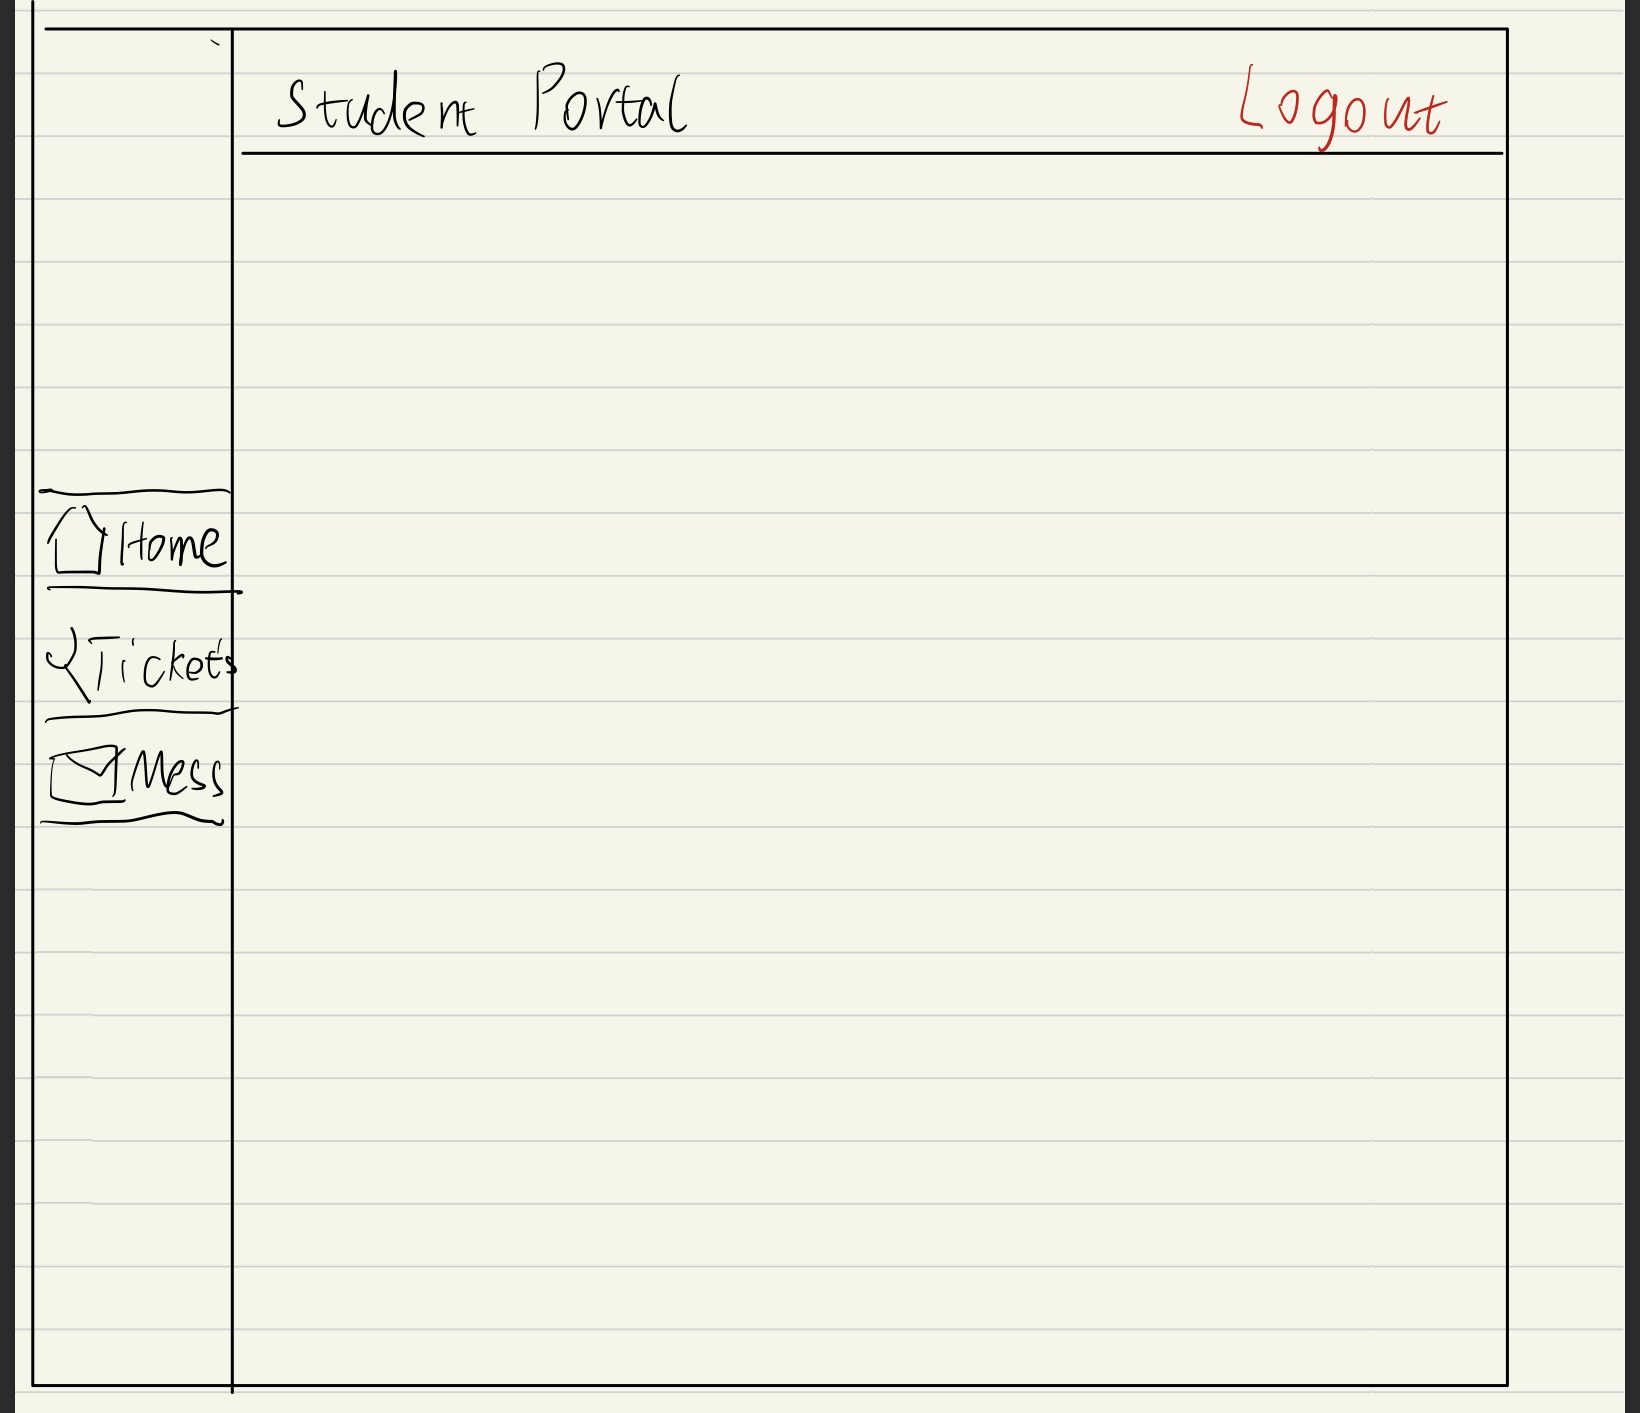 Student Portal
Logout
Home
Tickets
Mess